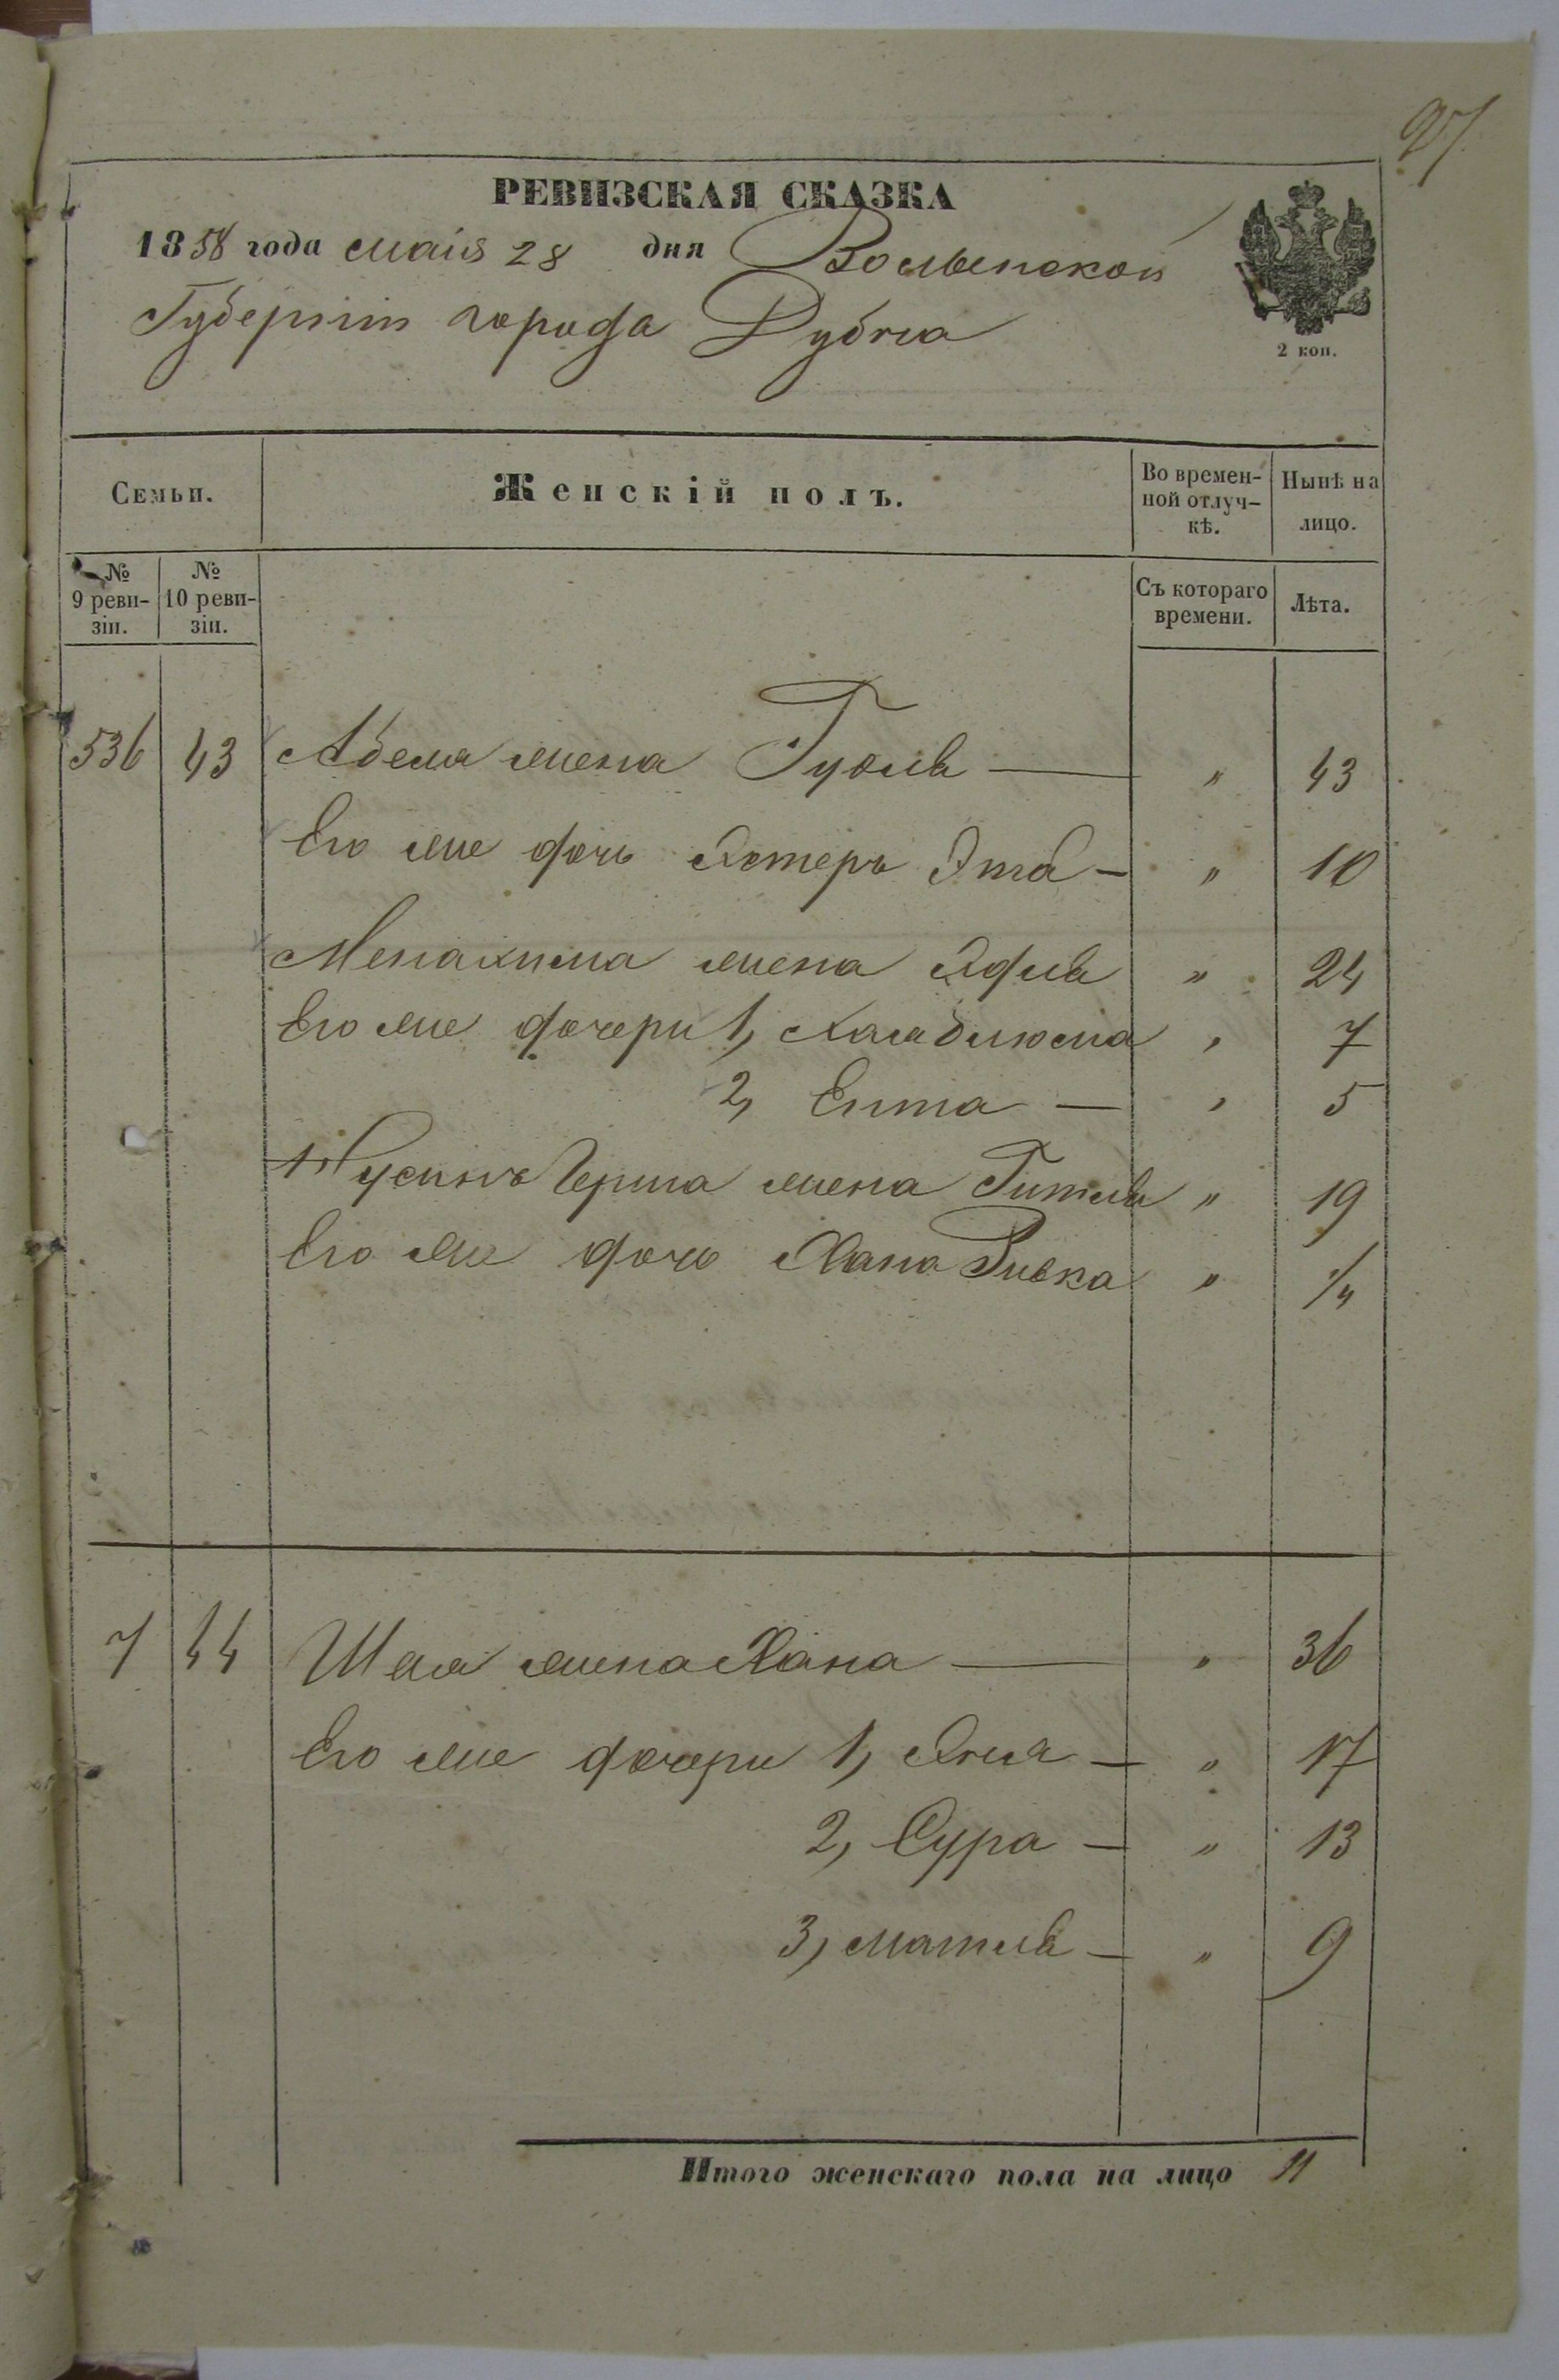 27
РЕВИЗСКАЯ СКАЗКА
1858 года маія 28 дня Волынской
Губерніи города Дубна
2 коп.
Семьи.
Женскій полъ.
Во времен-
ной отлуч-
кѣ.
Нынѣ на
лицо.
№
9 реви-
зіи.
№
10 реви-
зіи.
Съ котораго
времени.
Лѣта.
536 43 Абеля жена Гукль — " 43
Его же дочь Эстеръ Эта — " 10
Менахима жена Эдль " 24
Его же дочери 1, " 7
2, Ента — " 5
Герша жена Гитль " 19
Его же дочь Хана Ривка " 1/4
7 44 Шая жена Хана — " 36
Его же дочери 1, — " 17
2, Сура — " 13
3, Матль — " 9
Итого женскаго пола на лицо 11